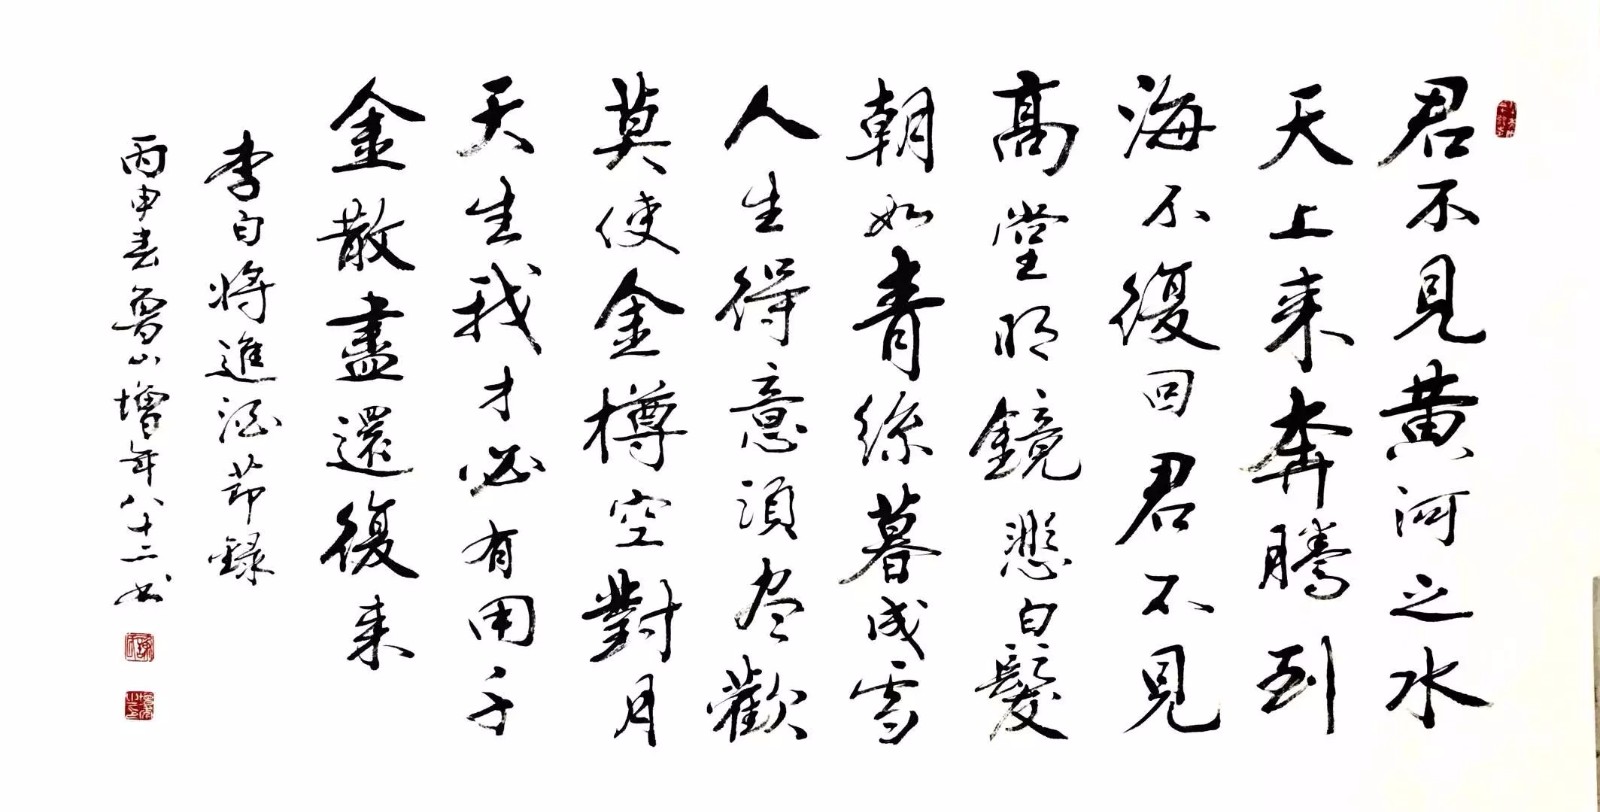 君不見黄河之水
天上来奔騰到
海不復回君不見
高堂明鏡悲白髮
朝如青絲暮成雪
人生得意須尽歡
莫使金樽空對月
天生我才必有用千
金散盡還復来
李白将進酒節録
丙申春魯山增年八十二书